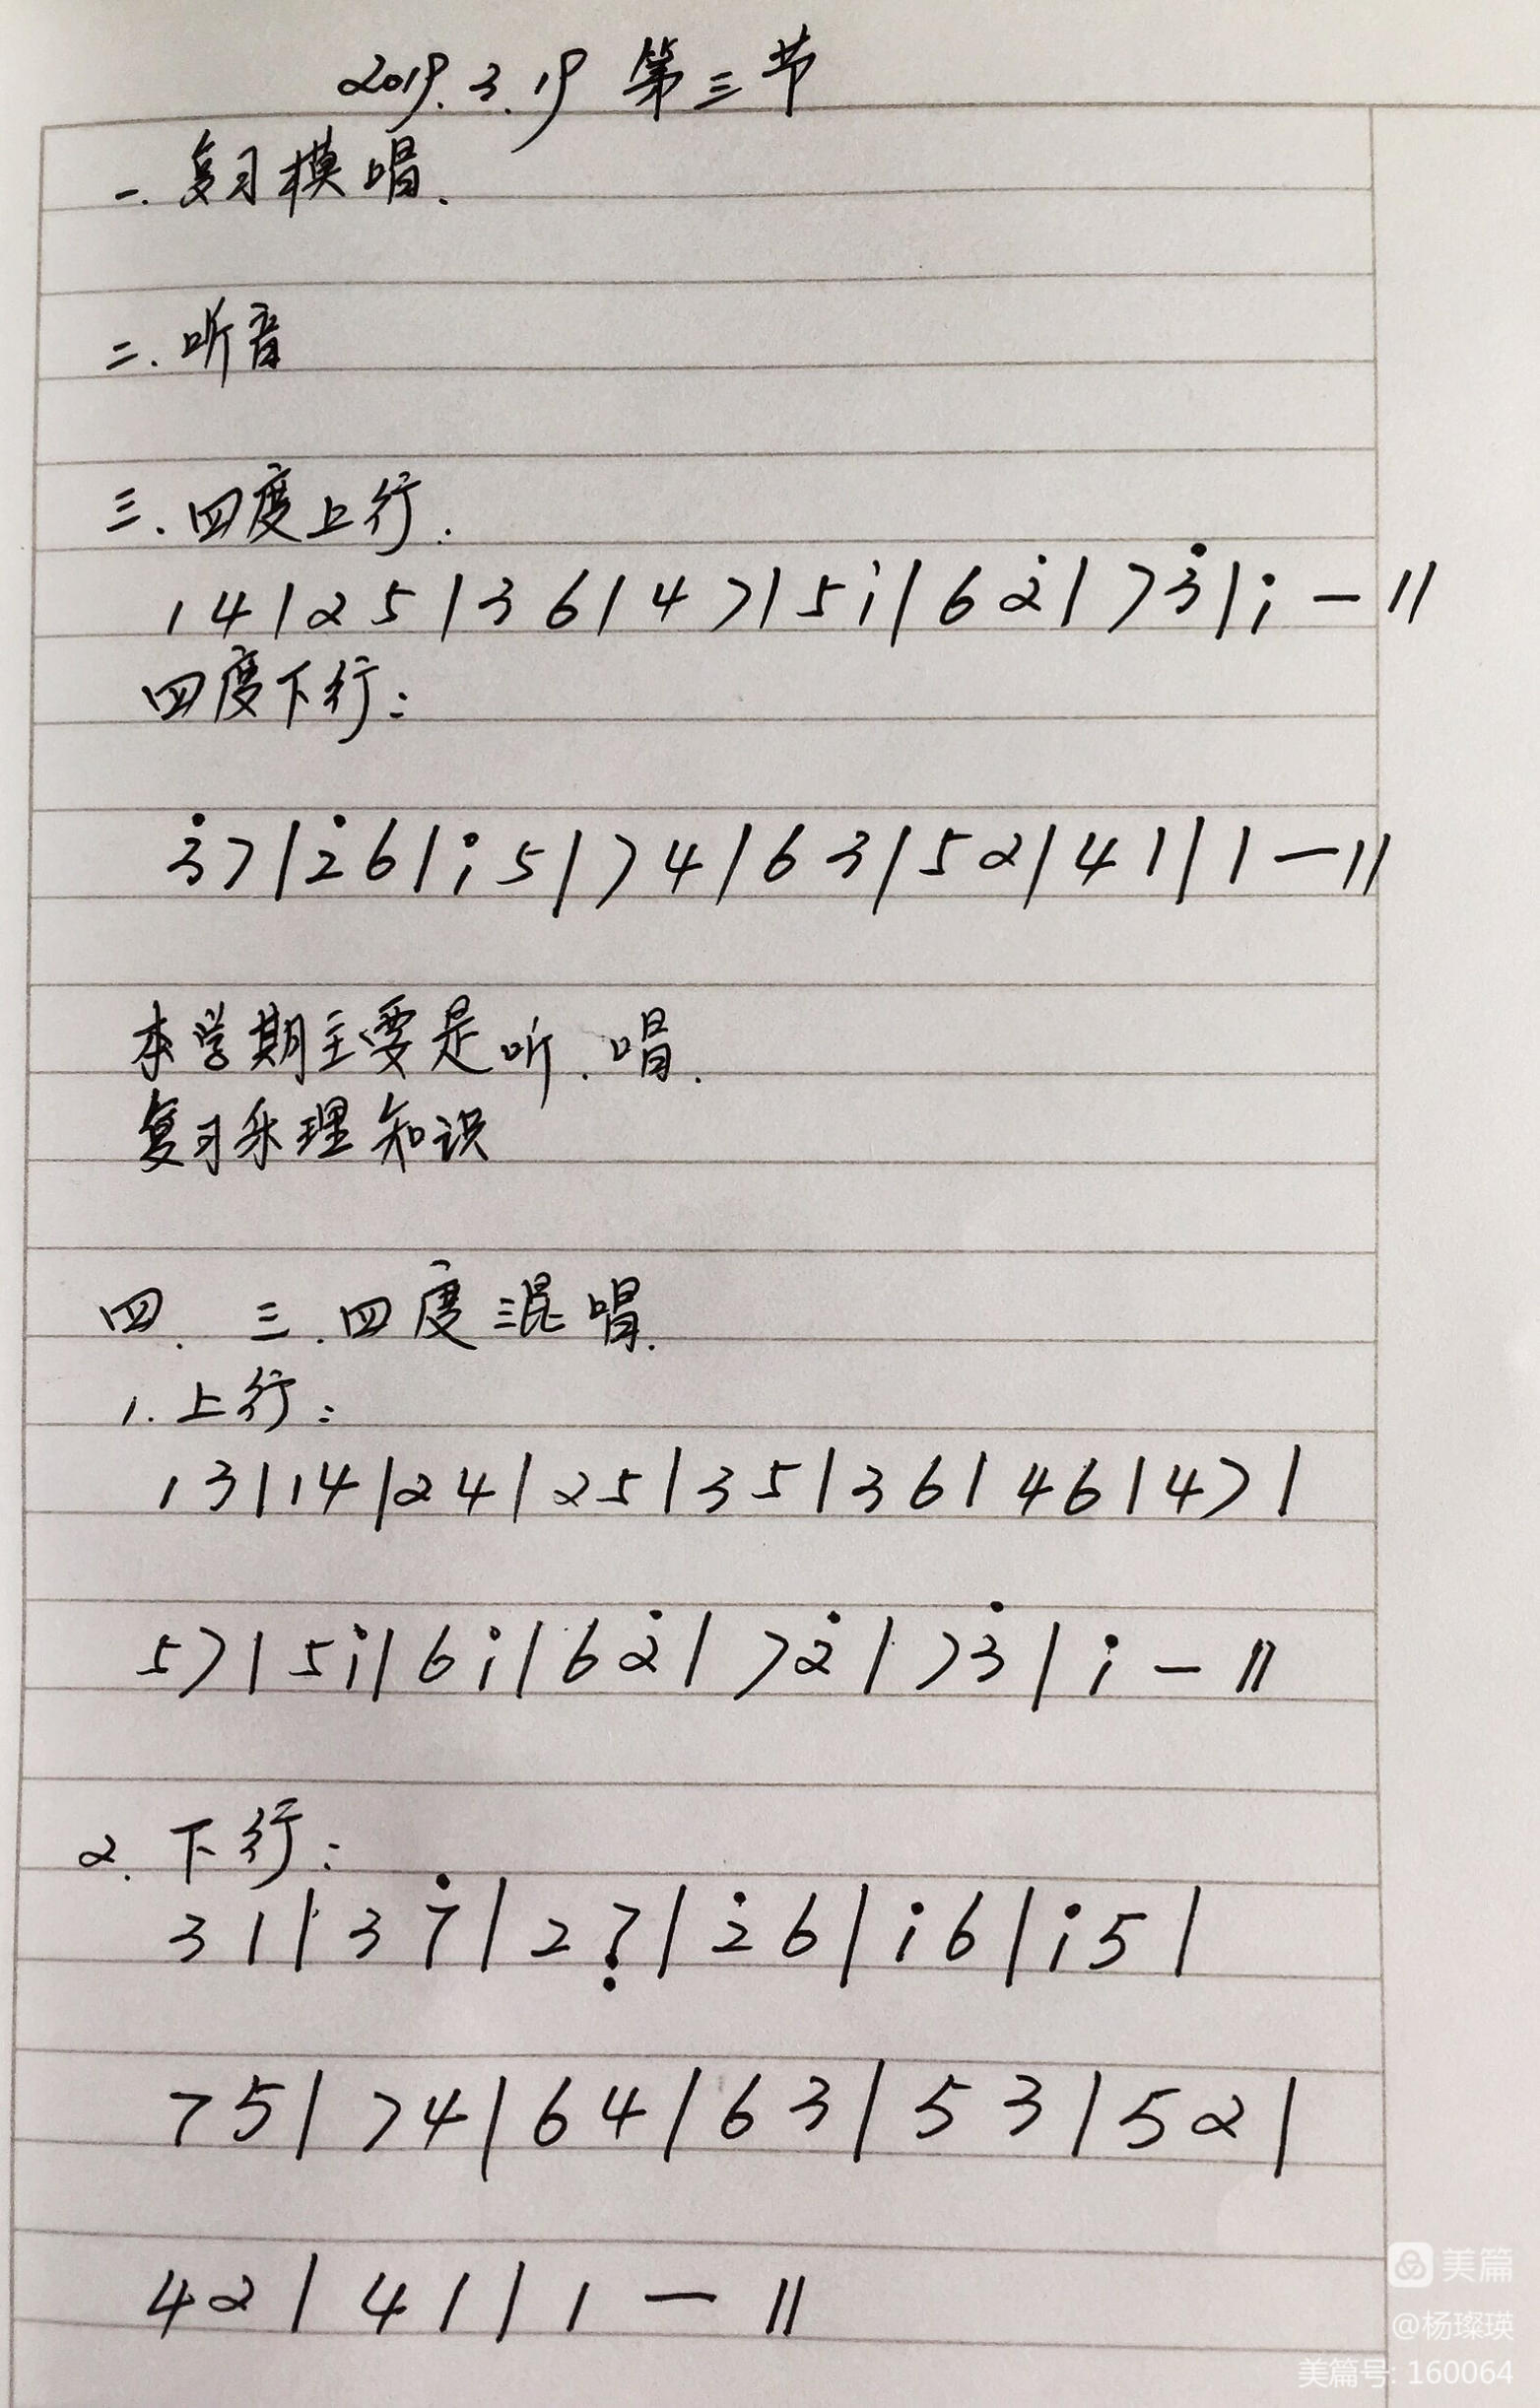 2019.3.19 第三节
一.复习模唱.
二.听音
三.四度上行:
1 4 | 2 5 | 3 6 | 4 7 | 5 i | 6 2̇ | 7 3̇ | i - ||
四度下行:
3̇ 7 | 2̇ 6 | i 5 | 7 4 | 6 3 | 5 2 | 4 1 | 1 - ||
本学期主要是听、唱.
复习乐理知识
四. 三.四度混唱.
1.上行:
1 3 | 1 4 | 2 4 | 2 5 | 3 5 | 3 6 | 4 6 | 4 7 |
5 7 | 5 i | 6 i | 6 2̇ | 7 2̇ | 7 3̇ | i - ||
2.下行:
3 1 | 3 7̇ | 2 7̣ | 2̇ 6 | i 6 | i 5 |
7 5 | 7 4 | 6 4 | 6 3 | 5 3 | 5 2 |
4 2 | 4 1 | 1 - ||
美篇
@杨璨瑛
美篇号: 160064